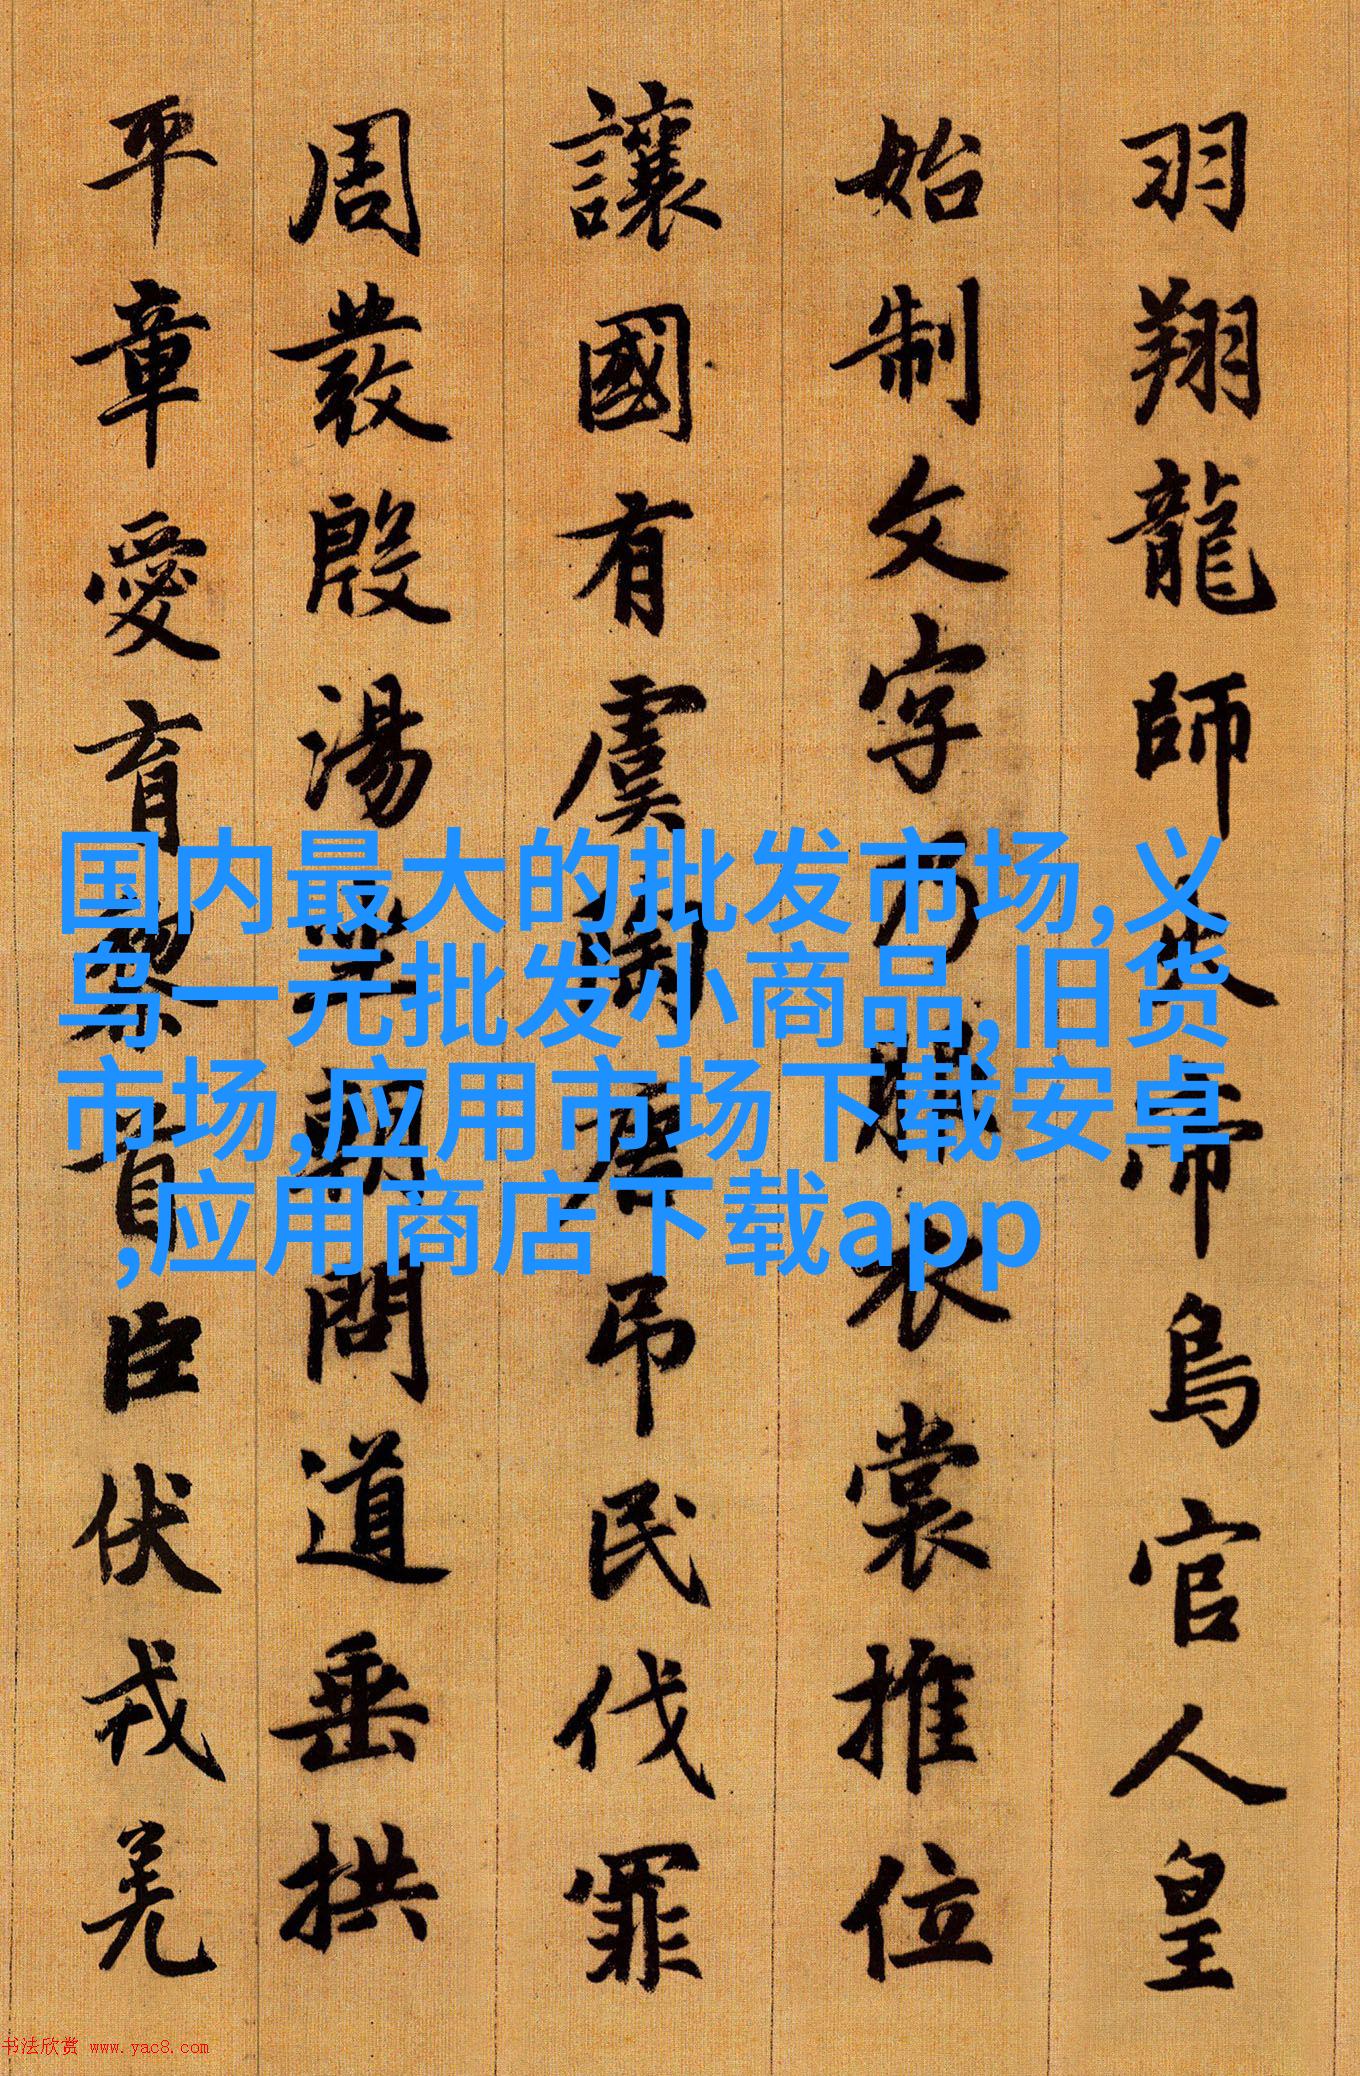 羽翔龍師火帝鳥官人皇
始制文字乃服衣裳推位
讓國有虞陶唐吊民伐罪
周發殷湯坐朝問道垂拱
平章愛育黎首臣伏戎羌
国内最大的批发市场,义
乌一元批发小商品,旧货
市场,应用市场下载安卓
,应用商店下载app
书法欣赏 www.yac8.com